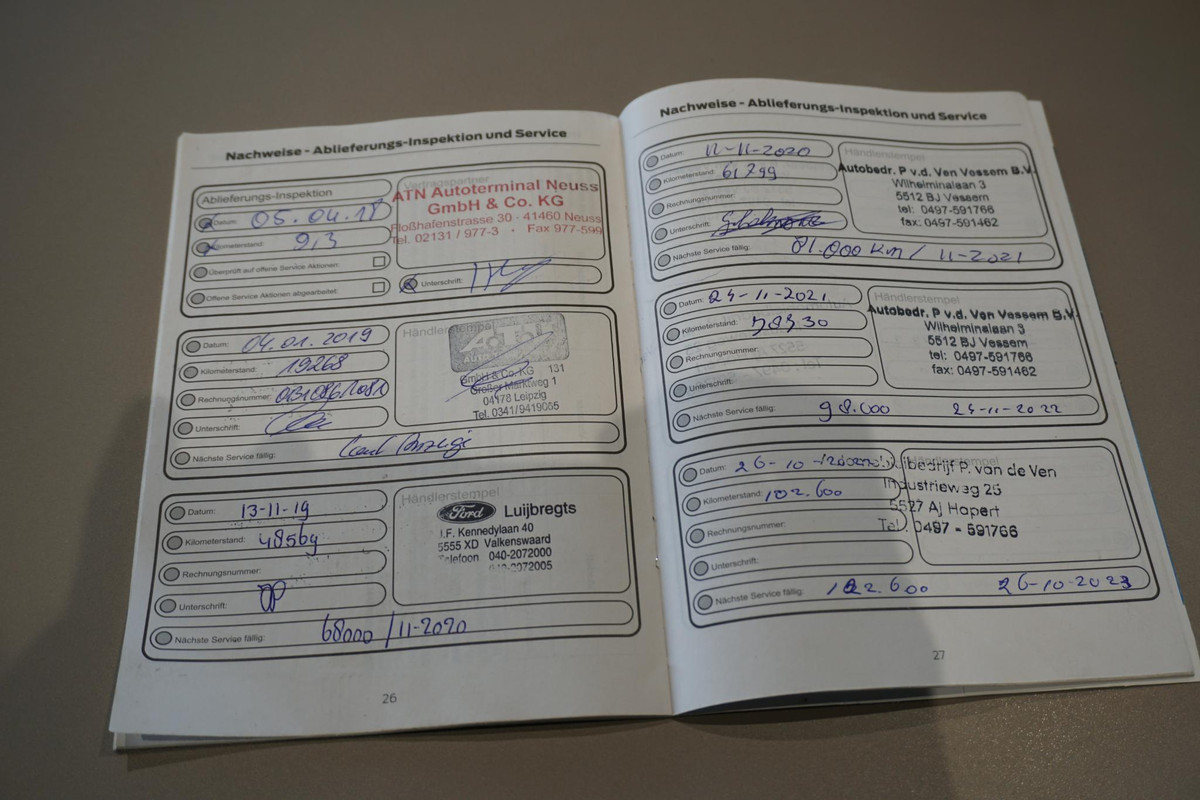 Nachweise - Ablieferungs-Inspektion und Service
Ablieferungs-Inspektion
Datum: 05.04.18
Kilometerstand: 9,3
Überprüft auf offene Service Aktionen:
Offene Service Aktionen abgearbeitet:
Vertragspartner
ATN Autoterminal Neuss
GmbH & Co. KG
Floßhafenstrasse 30 · 41460 Neuss
Tel. 02131 / 977-3 · Fax 977-599
Unterschrift:
Datum: 04.01.2019
Kilometerstand: 19268
Rechnungsnummer:
Unterschrift:
Nächste Service fällig:
Händlerstempel
GmbH & Co. KG 131
Großer Marktweg 1
04178 Leipzig
Tel. 0341/9419055
Datum: 13-11-19
Kilometerstand: 48569
Rechnungsnummer:
Unterschrift:
Nächste Service fällig: 68000 / 11-2020
Händlerstempel
Ford Luijbregts
J.F. Kennedylaan 40
5555 XD Valkenswaard
Telefoon 040-2072000
040-2072005
26
Nachweise - Ablieferungs-Inspektion und Service
Datum: 11-11-2020
Kilometerstand: 61799
Rechnungsnummer:
Unterschrift:
Nächste Service fällig: 81.000 km / 11-2021
Händlerstempel
Autobedr. P v.d. Ven Vessem B.V.
Wilhelminalaan 3
5512 BJ Vessem
tel: 0497-591766
fax: 0497-591462
Datum: 24-11-2021
Kilometerstand:
Rechnungsnummer:
Unterschrift:
Nächste Service fällig: 98.000 24-11-2022
Händlerstempel
Autobedr. P v.d. Ven Vessem B.V.
Wilhelminalaan 3
5512 BJ Vessem
tel: 0497-591766
fax: 0497-591462
Datum: 26-10-
Kilometerstand: 102.600
Rechnungsnummer:
Unterschrift:
Nächste Service fällig: 122.600 26-10-2023
Händlerstempel
P. van de Ven
Industrieweg 25
5527 AJ Hapert
Tel. 0497 - 591766
27